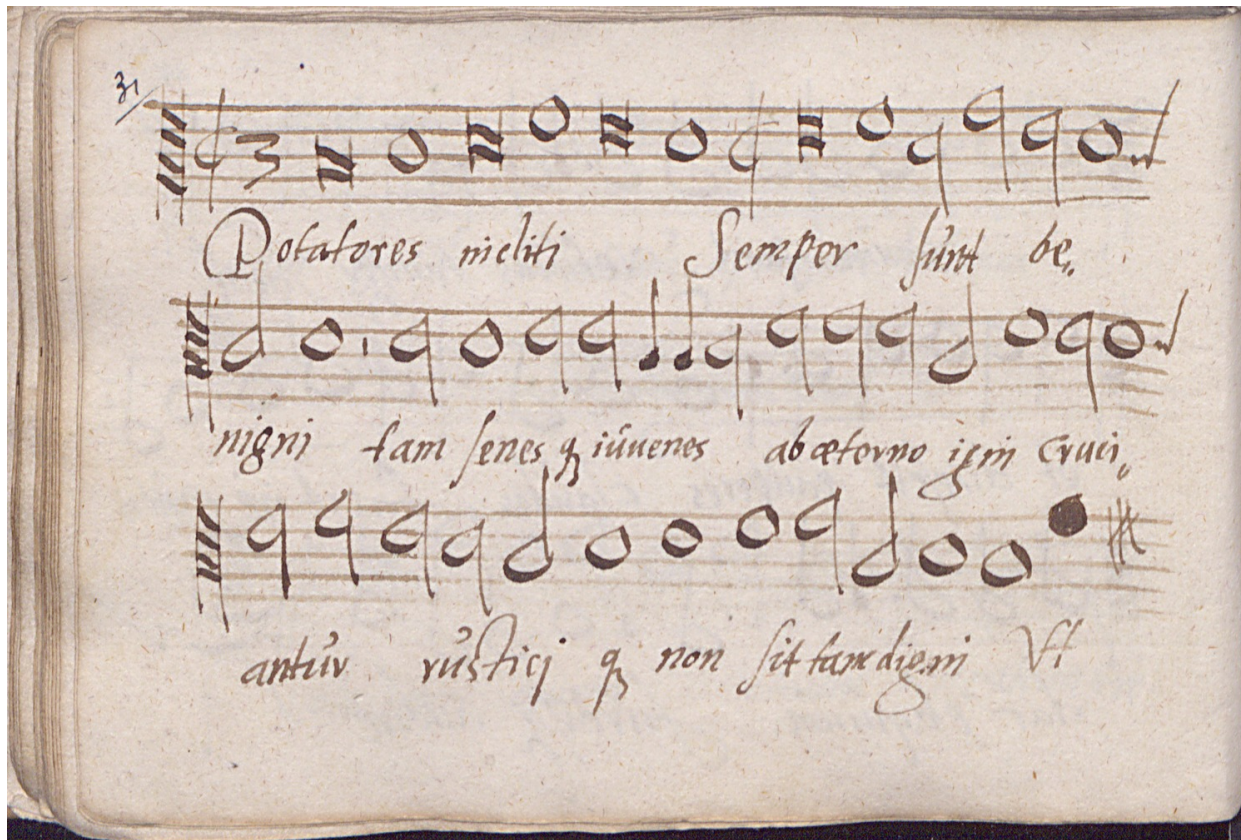 31
Potatores incliti Semper sunt be„
nigni tam senes q̃ iuvenes ab æterno igni Cruci„
antur rustici q̃ non sit tam digni Vt